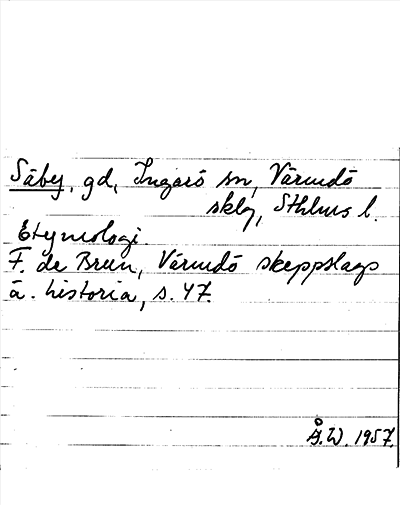 Säby, gd, Ingarö sn, Värmdö
sklg, Sthlms l.
Etymologi.
F. de Brun, Värmdö skeppslags
ä. historia, s. 47.
Å.W. 1957.